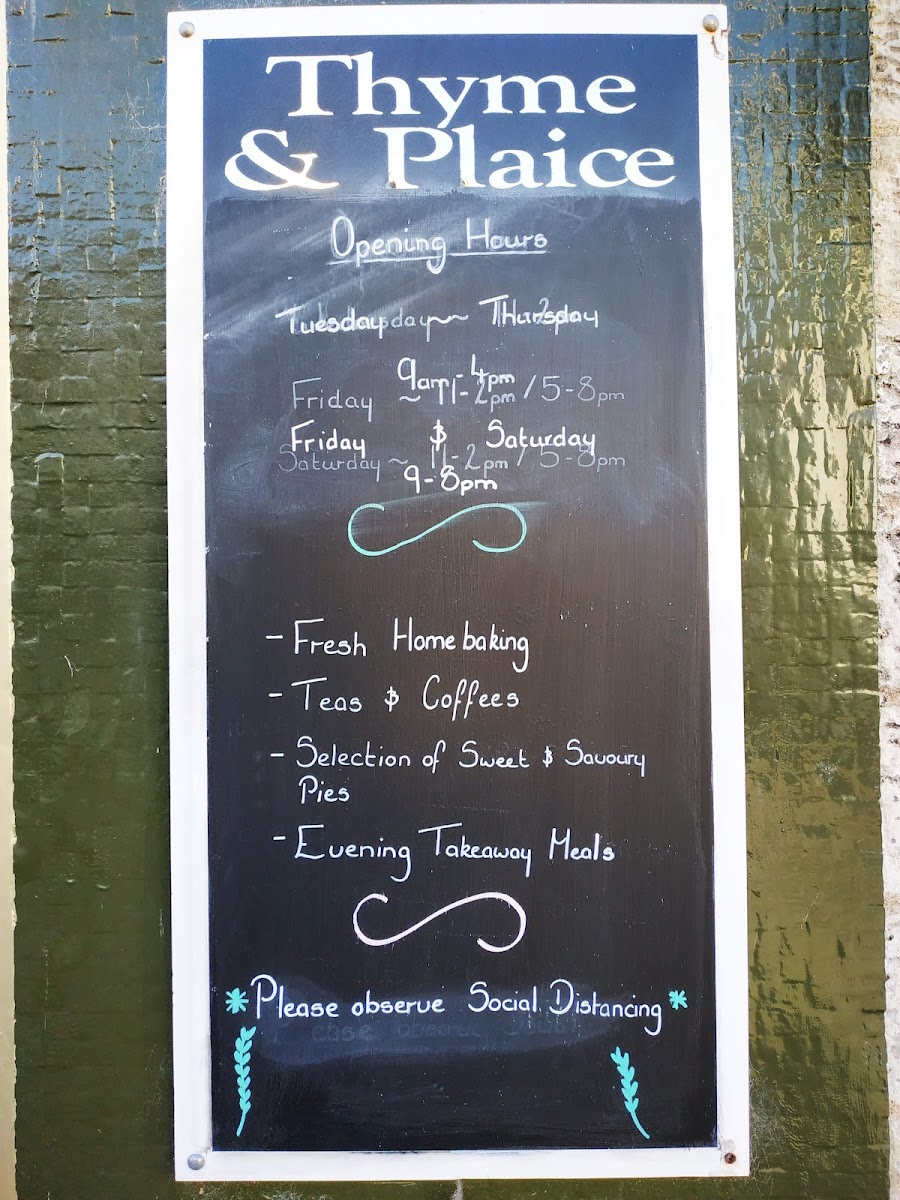 Thyme
& Plaice
Opening Hours
Tuesday ~ Thursday
9am - 4pm
Friday ~ 11-2pm / 5-8pm
Friday & Saturday
Saturday ~ 11-2pm / 5-8pm
9-8pm
- Fresh Home baking
- Teas & Coffees
- Selection of Sweet & Savoury
Pies
- Evening Takeaway Meals
Please observe Social Distancing
ease observe